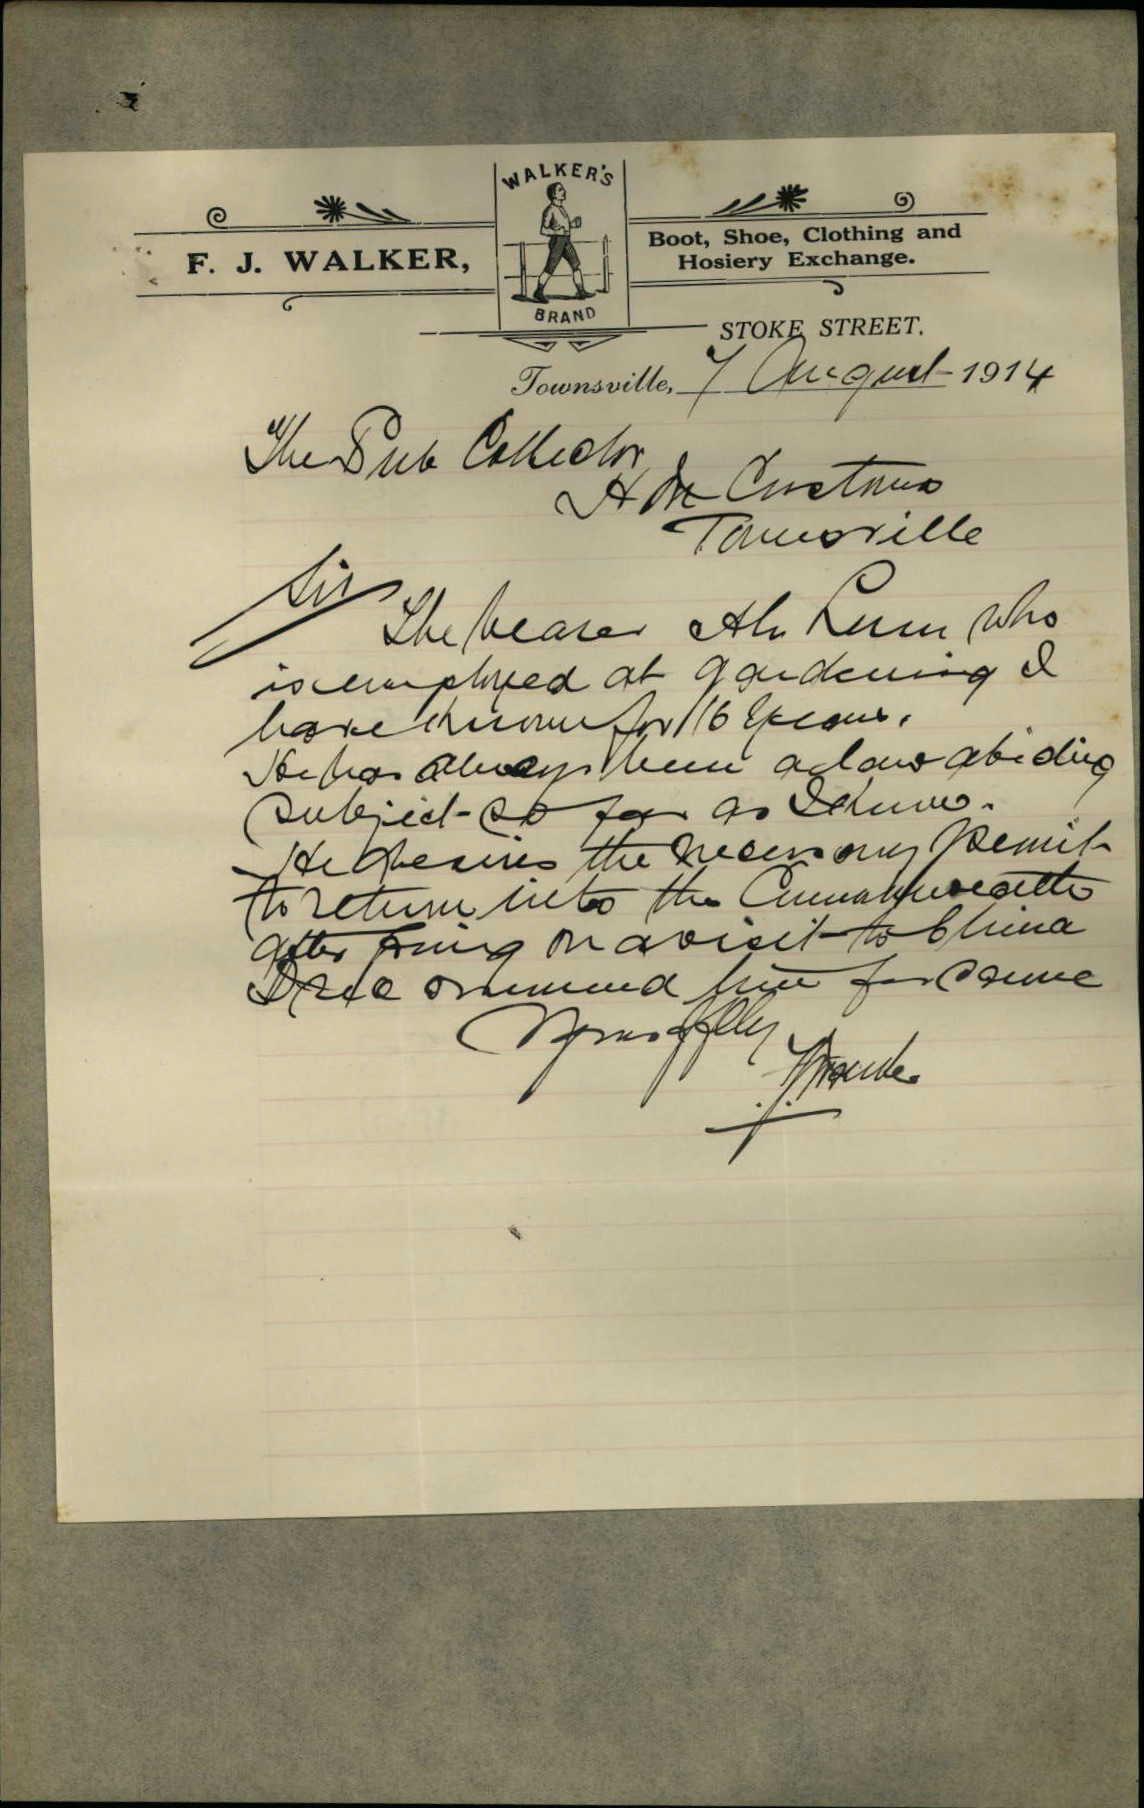 WALKER'S
BRAND
F. J. WALKER,
Boot, Shoe, Clothing and
Hosiery Exchange.
STOKE STREET.
Townsville, 7 August 1914
The Sub Collector
H M Customs
Townsville
Sir
The bearer Ah Lum who
is employed at gardening I
have known for 16 years.
He has always been a law abiding
subject so far as I know.
He desires the necessary permit
to return into the Commonwealth
after going on a visit to China
I recommend him for same
Yours ffly